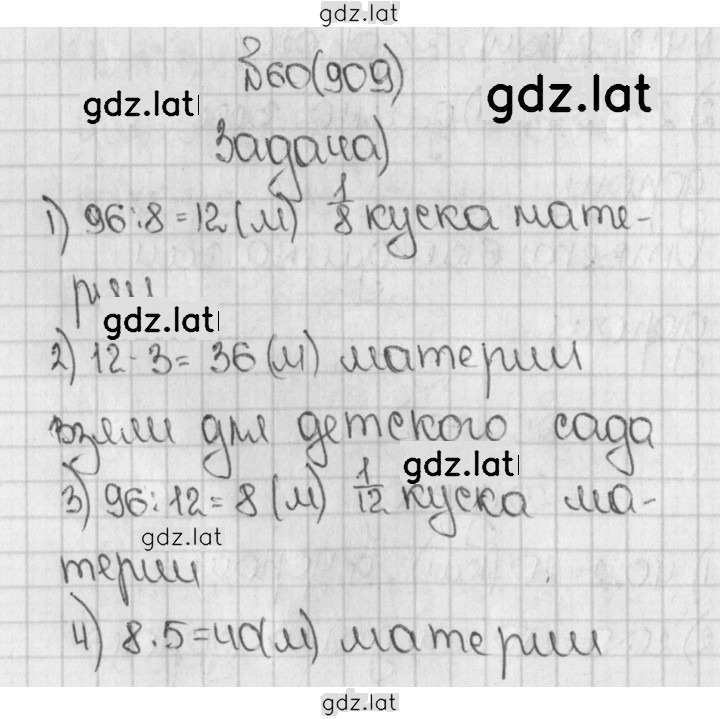 gdz.lat
№60(909)
gdz.lat
gdz.lat
Задача)
1) 96:8=12(м) 1/8 куска мате-
рии
gdz.lat
2) 12·3=36(м) материи
взяли для детского сада
gdz.lat
3) 96:12=8(м) 1/12 куска ма-
gdz.lat
терии
4) 8·5=40(м) материи
gdz.lat